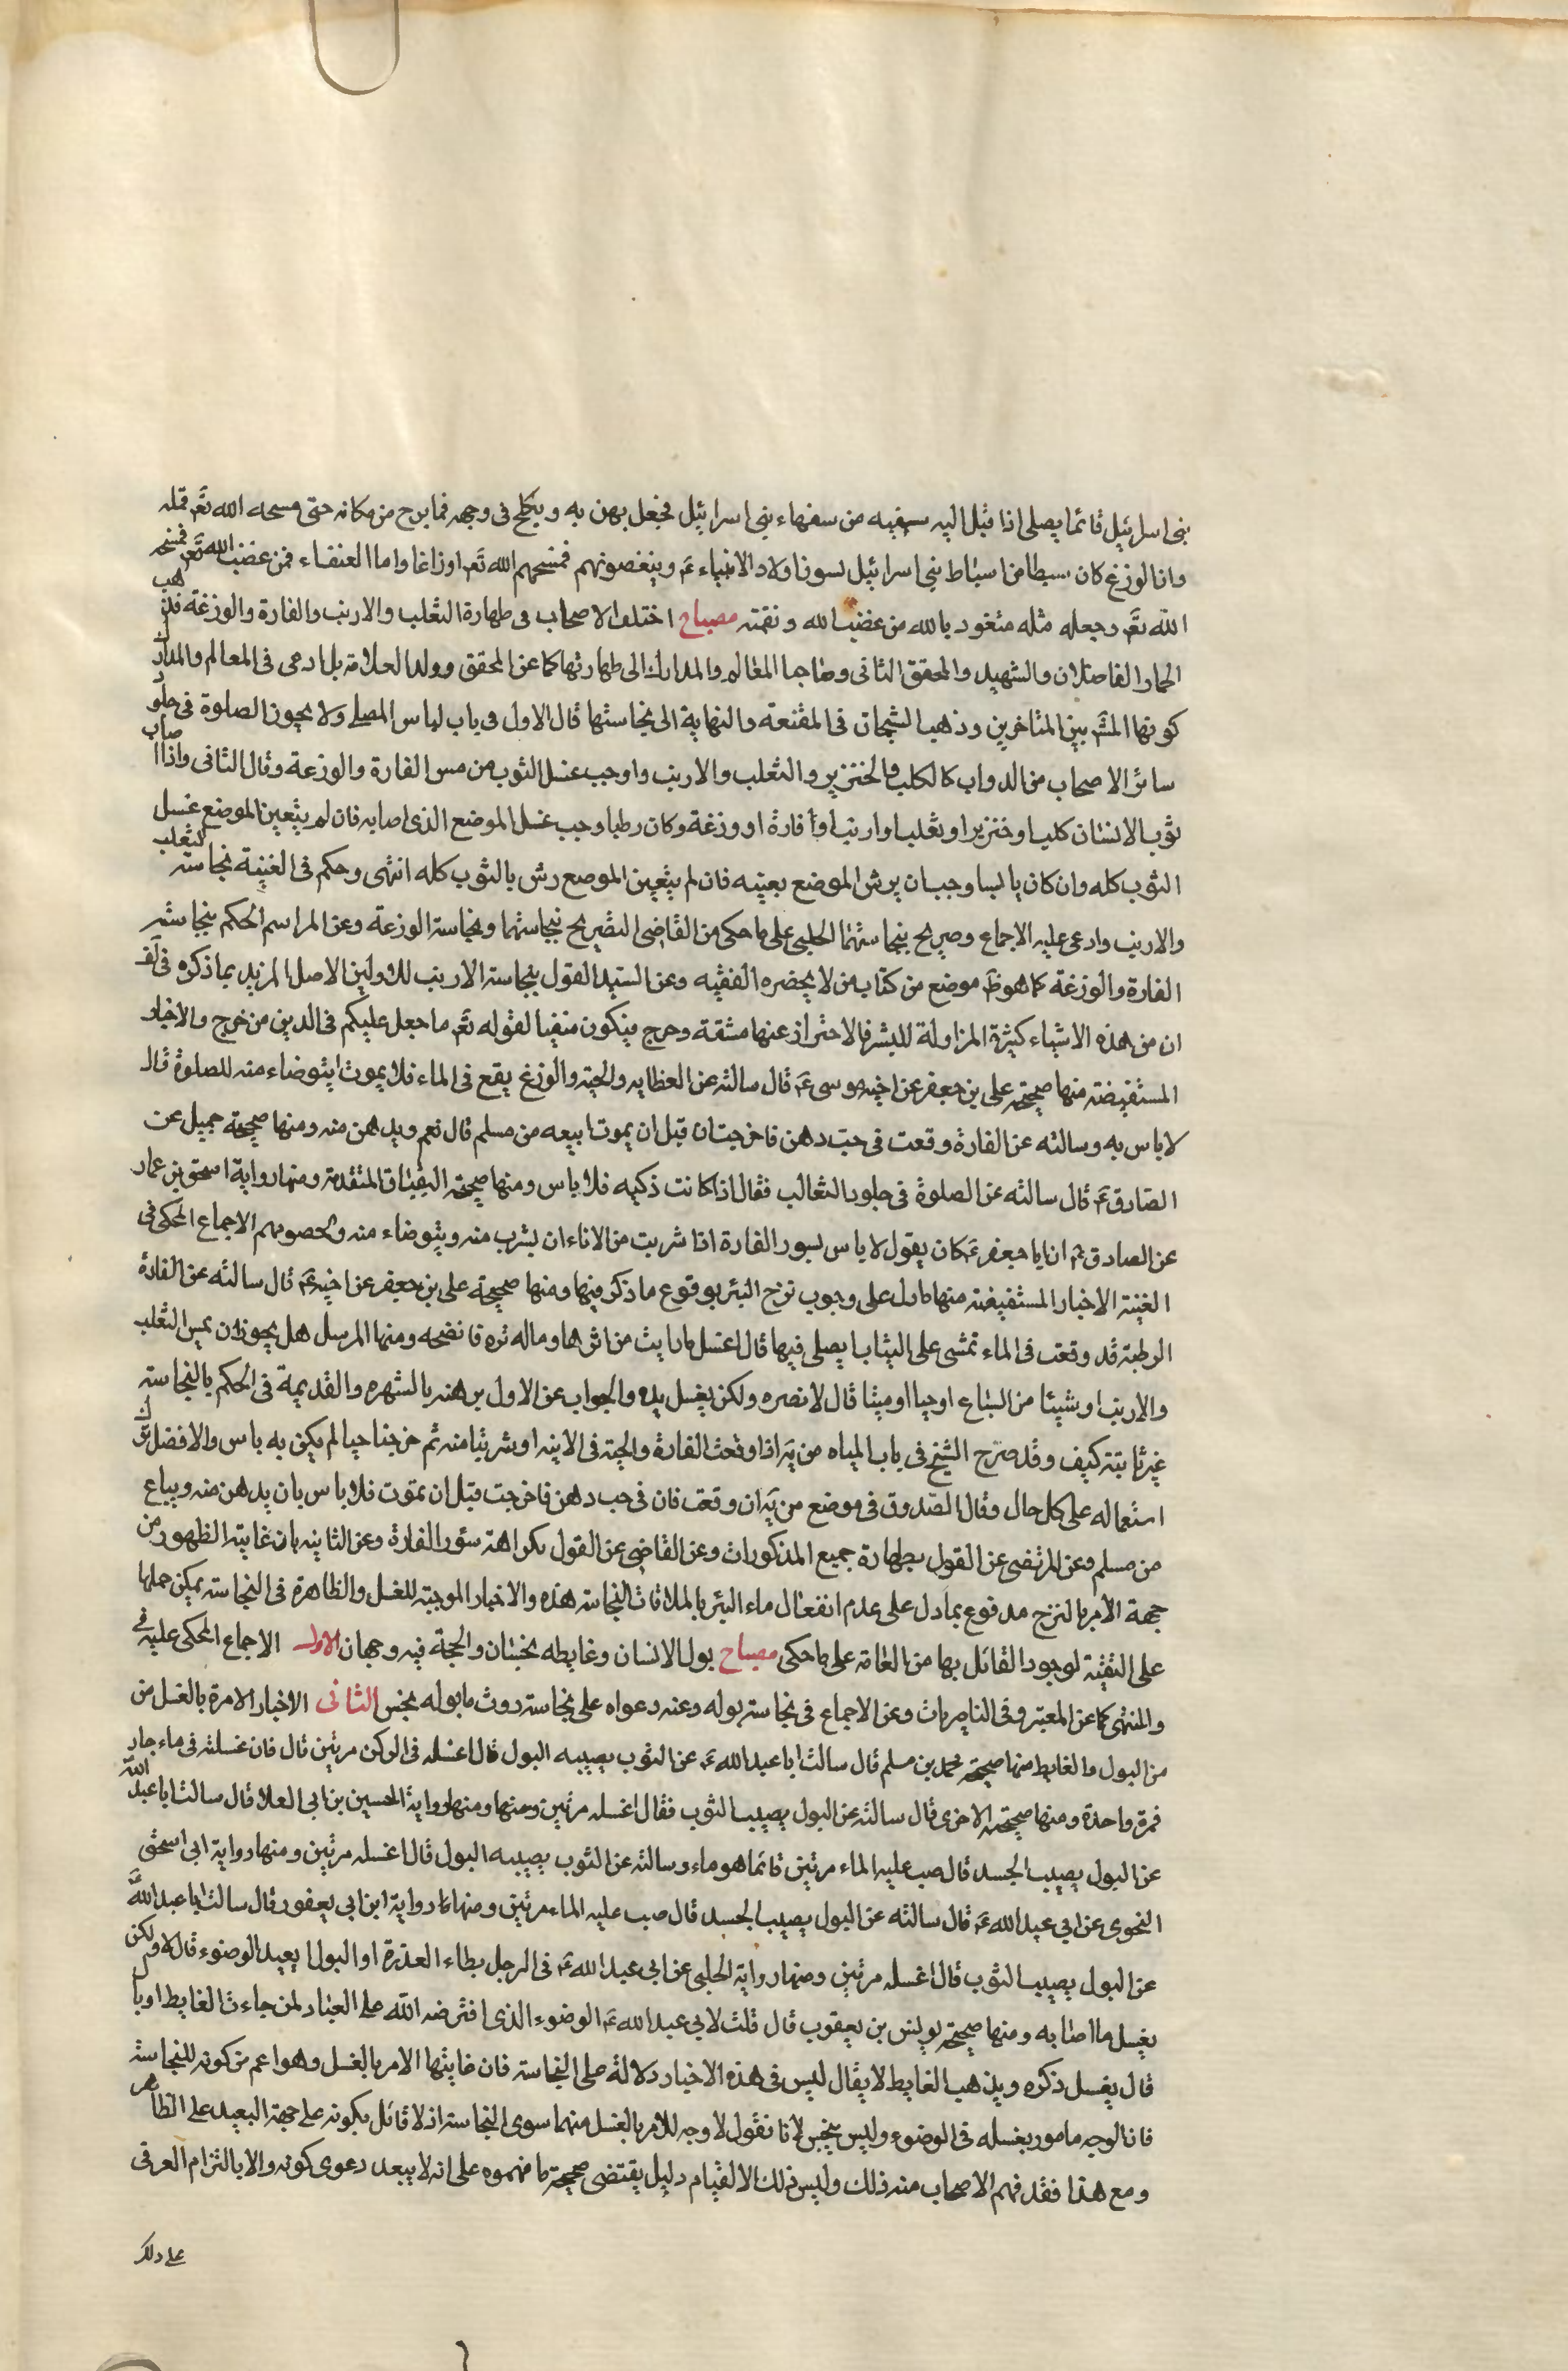 بنى اسرائيل قائما يصلى اذا قبل اليه سفيه من سفهاء بنى اسرائيل فجعل يهزء به ويكلح فى وجهه فما برح من مكانه حتى مسحه الله تع فمثله
وان الوزغ كان سبطا من اسباط بنى اسرائيل يسون اولاد الانبياء ع ويبغضونهم فمسخهم الله تع اوزاغا واما العنقاء فمن غضب الله تع فمسخه
الله تع وجعله مثله متعوذ بالله من غضب الله ونقمته مصباح اختلف الاصحاب فى طهارة الثعلب والارنب والفارة والوزغة فذهب
الحمار الفاضلان والشهيد والمحقق الثانى وصاحبا المعالم والمدارك الى طهارتها كما عن المحقق وولد العلامة بل ادعى فى المعالم والمدارك
كونها المش بين المتاخرين وذهب الشيخان فى المقنعة والنهاية الى نجاستها قال الاول فى باب لباس المصلى ولا يجوز الصلوة فى جلود
سائر الاصحاب من الدواب كالكلب والخنزير والثعلب والارنب واوجب غسل الثوب من مس الفارة والوزغة وقال الثانى واذا اصاب
ثوب الانسان كلب او خنزير او ثعلب او ارنب او فارة او وزغة وكان رطبا وجب غسل الموضع الذى اصابه فان لم يتعين الموضع غسل
الثوب كله وان كان يابسا وجب ان يرش الموضع بعينه فان لم يتعين الموضع رش بالثوب كله انتهى وحكم فى الغنية نجاسة الثعلب
والارنب وادعى عليه الاجماع وصريح بنجاستهما الحلبى على ما حكى من القاضى التصريح بنجاستهما ونجاسة الوزغة وعن المراسم الحكم بنجاسة
الفارة والوزغة كما هو ظ موضع من كتاب من لا يحضره الفقيه وعن السيد القول بنجاسة الارنب للاولين الاصل المزيد بما ذكره فى لف
ان من هذه الاشياء كثيرة المزاولة للبشر فالاحتراز عنها مشقة وحرج فيكون منفيا لقوله تع ما جعل عليكم فى الدين من حرج والاخبار
المستفيضة منها صحيحة على بن جعفر عن اخيه موسى ع قال سالته عن العظايه والحية والوزغ يقع فى الماء فلا يموت ايتوضاء منه للصلوة قال
لا باس به وسالته عن الفارة وقعت فى حب دهن فاخرجت ان قبل ان يموت ابيعه من مسلم قال نعم ويدهن منه ومنها صحيحة جميل عن
الصادق ع قال سالته عن الصلوة فى جلود الثعالب فقال اذا كانت ذكيه فلا باس ومنها صحيحة البقباق المتقدمة ومنها رواية اسحق بن عمار
عن الصادق ع ان ابا جعفر ع كان يقول لا باس بسور الفارة اذا شربت من الاناء ان يشرب منه ويتوضاء منه ولخصومهم الاجماع المحكى فى
الغنية الاخبار المستفيضة منها ما دل على وجوب نزح البئر بوقوع ما ذكر فيها ومنها صحيحة على بن جعفر عن اخيه ع قال سالته عن الفارة
الرطبة قد وقعت فى الماء تمشى على الثياب ايصلى فيها قال اغسل ما رايت من اثرها وما له تره فانضحه ومنها المرسل هل يجوز ان يمس الثعلب
والارنب او شيئا من السباع او حيا او ميتا قال لا نصره ولكن يغسل يده والجواب عن الاول بوهنه بالشهره والقديمة فى الحكم بالنجاسة
غير ثابتة كيف وقد صرح الشيخ فى باب المياه من يه اذا وقعت الفارة والحية فى الانيه او شربتا منه ثم خرجنا حيا لم يكن به باس والافضل ترك
استعماله على كل حال وقال الصدوق فى موضع من يه ان وقعت فان فى حب دهن فاخرجت قبل ان تموت فلا باس بان يدهن منه ويباع
من مسلم وعن المرتضى عن القول بطهارة جميع المذكورات وعن القاضى عن القول بكراهة سؤر الفارة وعن الثانيه بان غاية الظهور من
جهة الامر بالنزح مدفوع بما دل على عدم انفعال ماء البئر بالملاقات النجاسة هذه والاخبار الموجبة للغسل والظاهرة فى النجاسة يمكن حملها
على التقية لوجود القائل بها من العامة على ما حكى مصباح بول الانسان وغايطه نجسان والحجة فيه وجهان الاول الاجماع المحكى عليه فى
والمنتهى كما عن المعتبر وفى الناصريات وعن الاجماع فى نجاسة بوله وعنه دعواه على نجاسة روث ما بوله نجس الثانى الاخبار الامرة بالغسل من
من البول والغايط منها صحيحة محمد بن مسلم قال سالت ابا عبد الله ع عن الثوب يصيبه البول قال اغسله فى المركن مرتين قال فان غسلته فى ماء جار
فمرة واحدة ومنها صحيحته الاخرى قال سالته عن البول يصيب الثوب فقال اغسله مرتين ومنها ومنها رواية الحسين بن ابى العلا قال سالت ابا عبد الله
عن البول يصيب الجسد قال صب عليه الماء مرتين فانما هو ماء وسالته عن الثوب يصيبه البول قال اغسله مرتين ومنها رواية ابى اسحق
النحوى عن ابى عبد الله ع قال سالته عن البول يصيب الجسد قال صب عليه الماء مرتين ومنها ما رواية ابن ابى يعفور قال سالت ابا عبد الله
عن البول يصيب الثوب قال اغسله مرتين ومنها رواية الحلبى عن ابى عبد الله ع فى الرجل يطاء العذرة او البول ايعيد الوضوء قال لا ولكن
يغسل ما اصابه ومنها صحيحة يونس بن يعقوب قال قلت لابى عبد الله ع الوضوء الذى افترضه الله على العباد لمن جاء ث الغايط او بال
قال يغسل ذكره ويذهب الغايط لا يقال ليس فى هذه الاخبار دلالة على النجاسة فان غايتها الامر بالغسل وهو اعم من كونه للنجاسة
فان الوجه مامور بغسله فى الوضوء وليس بنجس لانا نقول لا وجه للامر بالغسل منهما سوى النجاسة اذ لا قائل بكونه على جهة التعبد على الظاهر
ومع هذا فقد فهم الاصحاب منه ذلك وليس ذلك الا لقيام دليل يقتضى صحة ما فهموه على انه لا يبعد دعوى كونه والا بالتزام العرفى
على ذلك